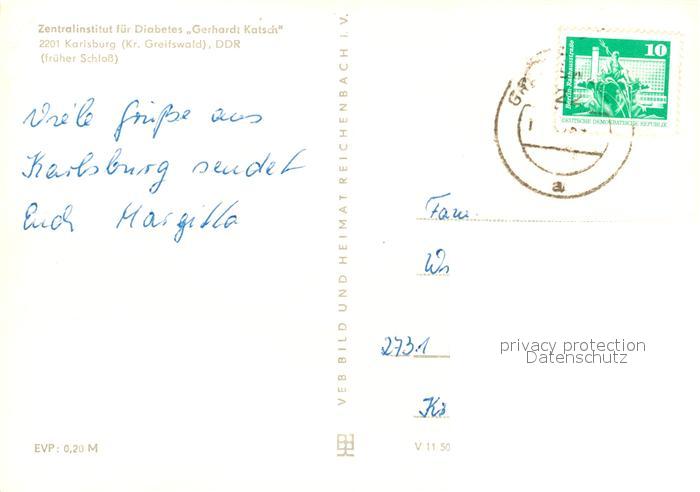 Zentralinstitut für Diabetes „Gerhardt Katsch"
2201 Karlsburg (Kr. Greifswald), DDR
(früher Schloß)
Viele Grüße aus
Karlsburg sendet
Euch Margitta
EVP: 0,20 M
VEB BILD UND HEIMAT REICHENBACH I. V.
10
Berlin-Rathausstraße
DEUTSCHE DEMOKRATISCHE REPUBLIK
a
Fam.
273.1
privacy protection
Datenschutz
V 11 50